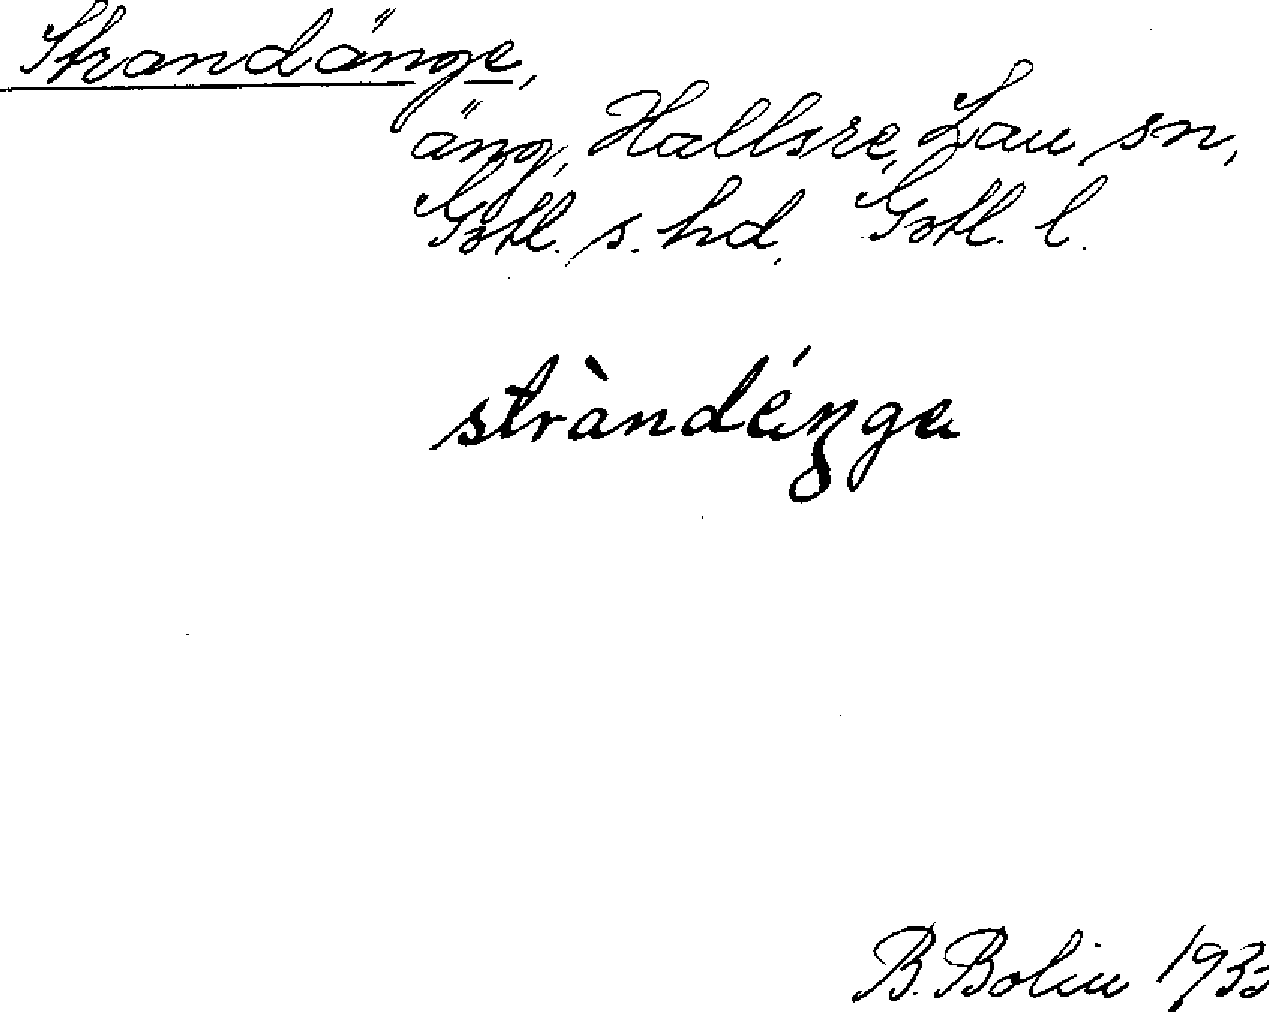 Strandänge,
äng, Hallsre, Lau sn,
Gotl. s. hd. Gotl. l.
stràndéŋga
B. Bolin 1933